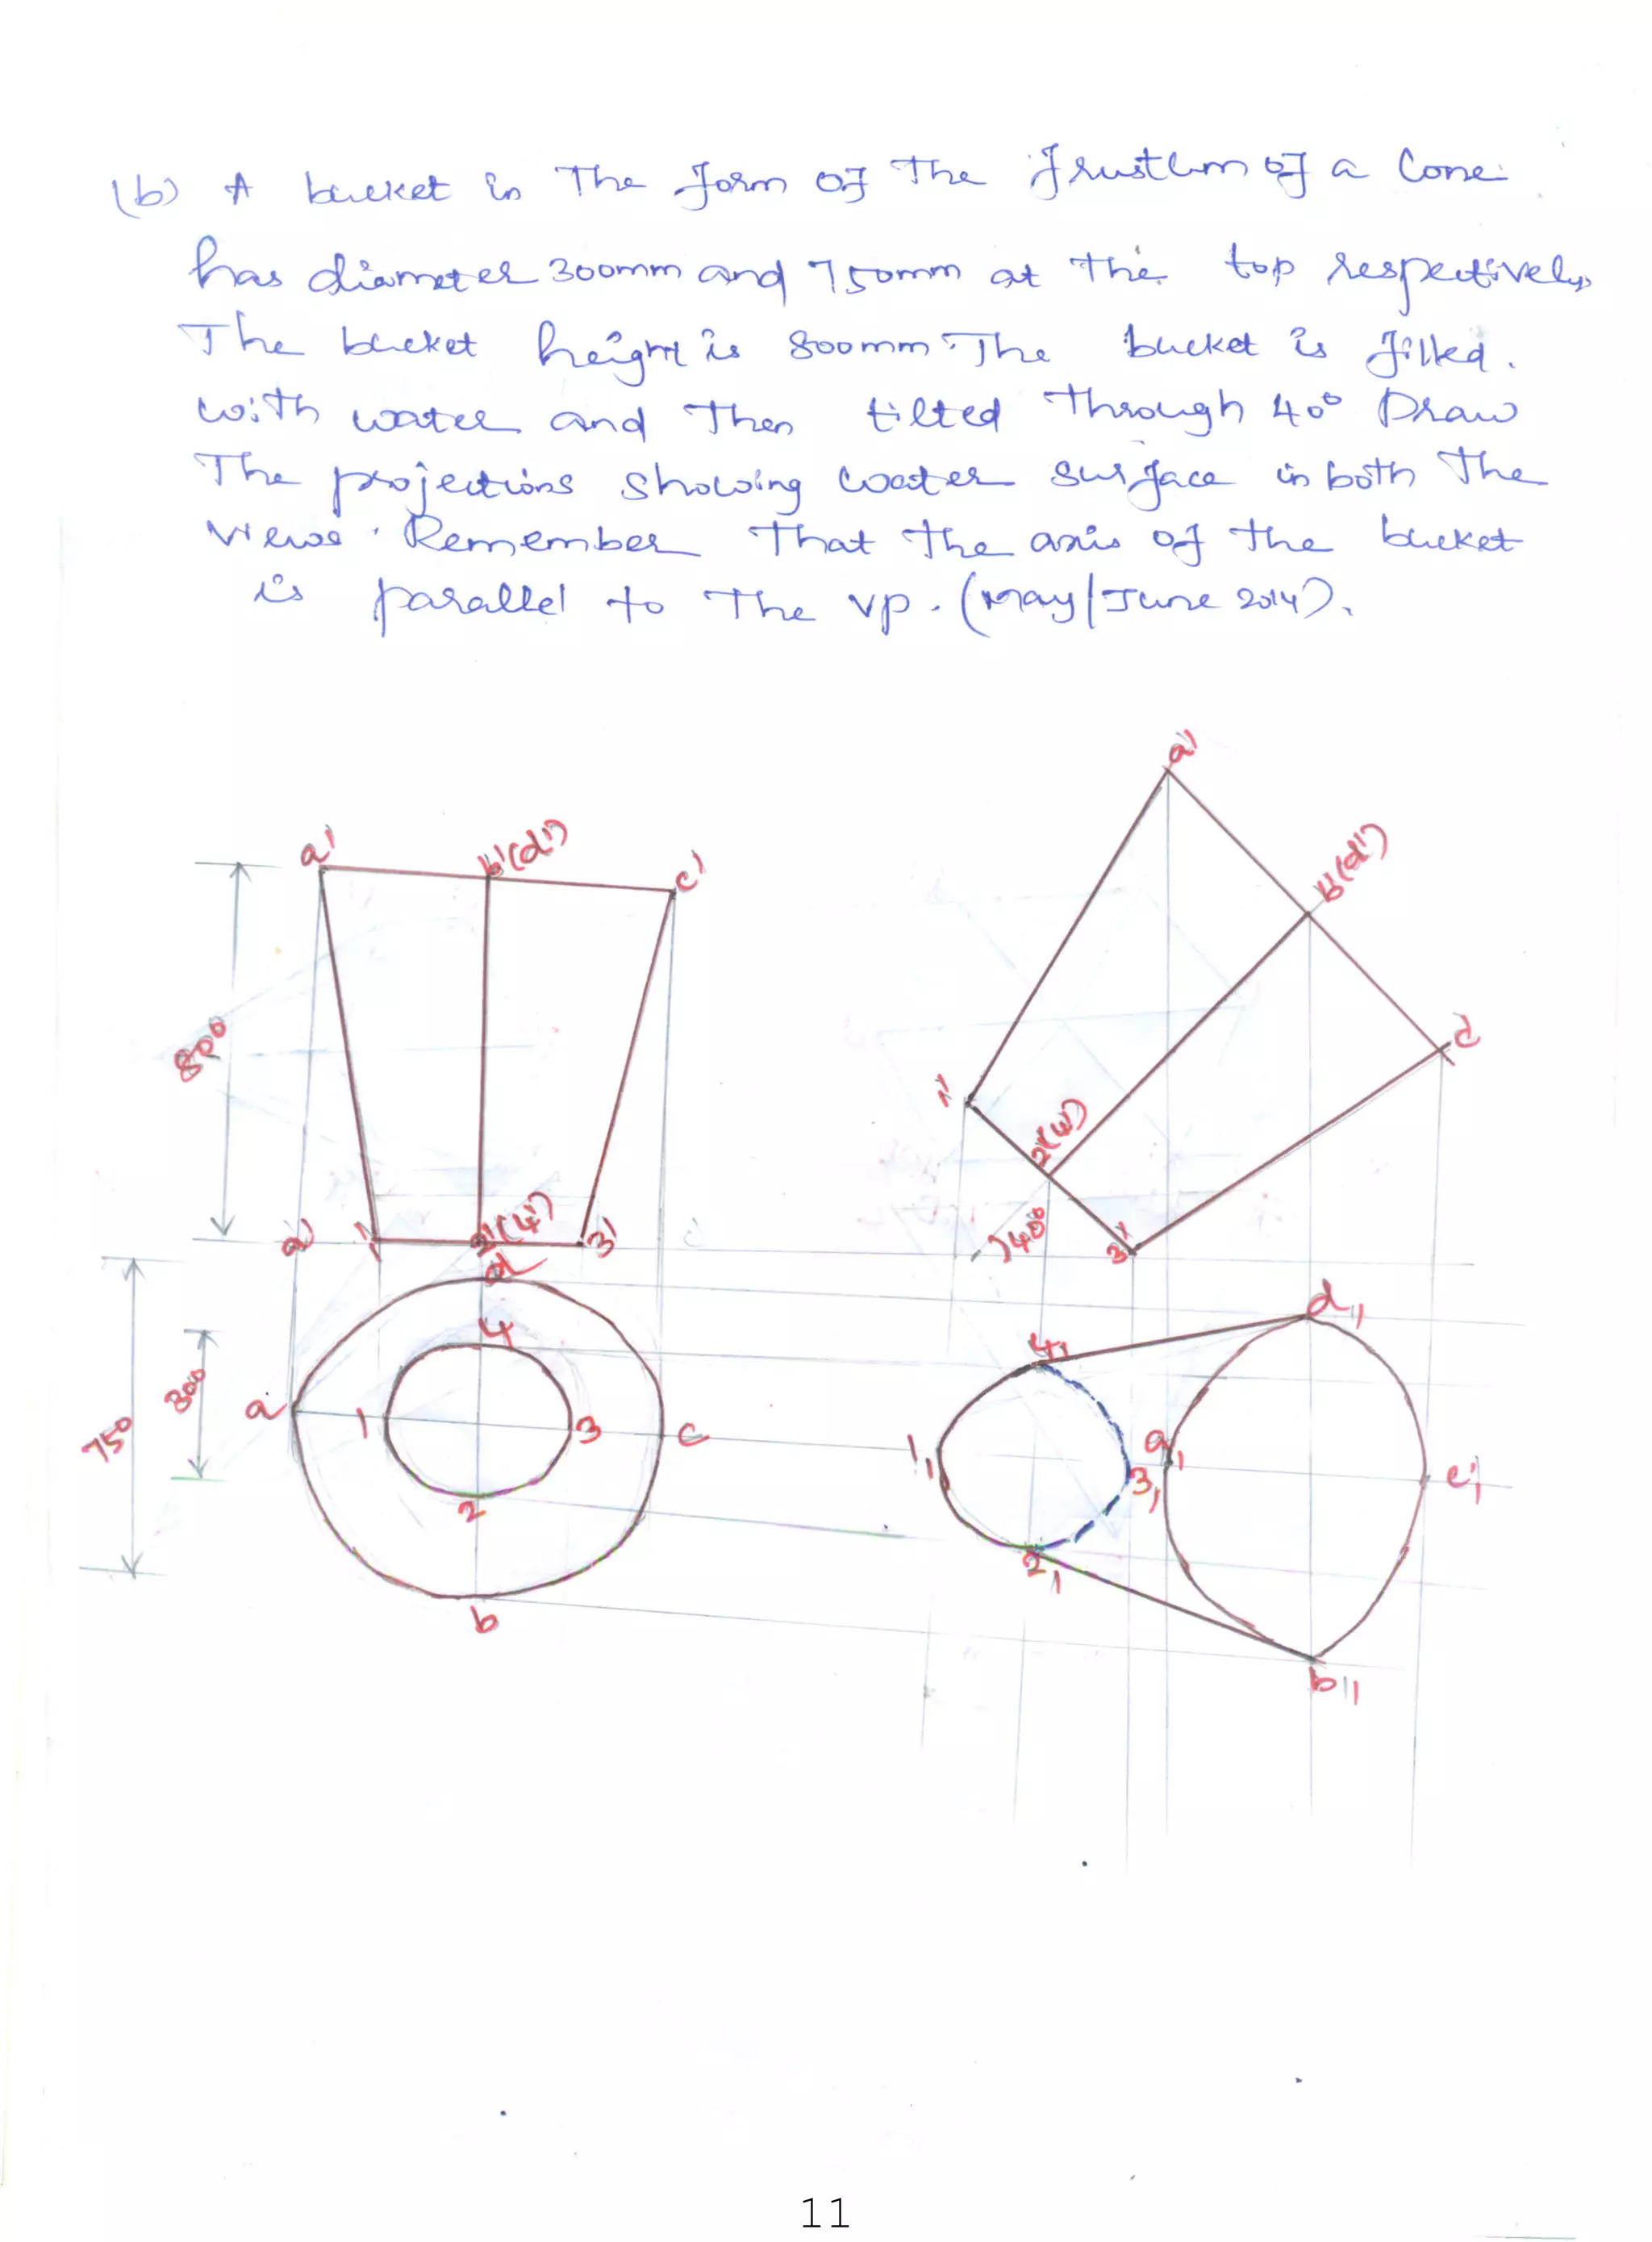 (b) A bucket in The form of The frustum of a Cone
has diameter 300mm and 750mm at the top respectively.
The bucket height is 800mm. The bucket is filled.
with water and Then tilted through 40° Draw
The projections showing water surface in both the
views. Remember That the axis of the bucket
is parallel to The vp. (May/June 2014).
a'
a' b'(d') c'
b'(d')
800
c'
1' 2'(4')
a' 1' 2'(4') 3' c'
40° 3'
d d1
4 41
300
750
a 1 3 c 11 31 a1 c'1
2 21
b b11
11